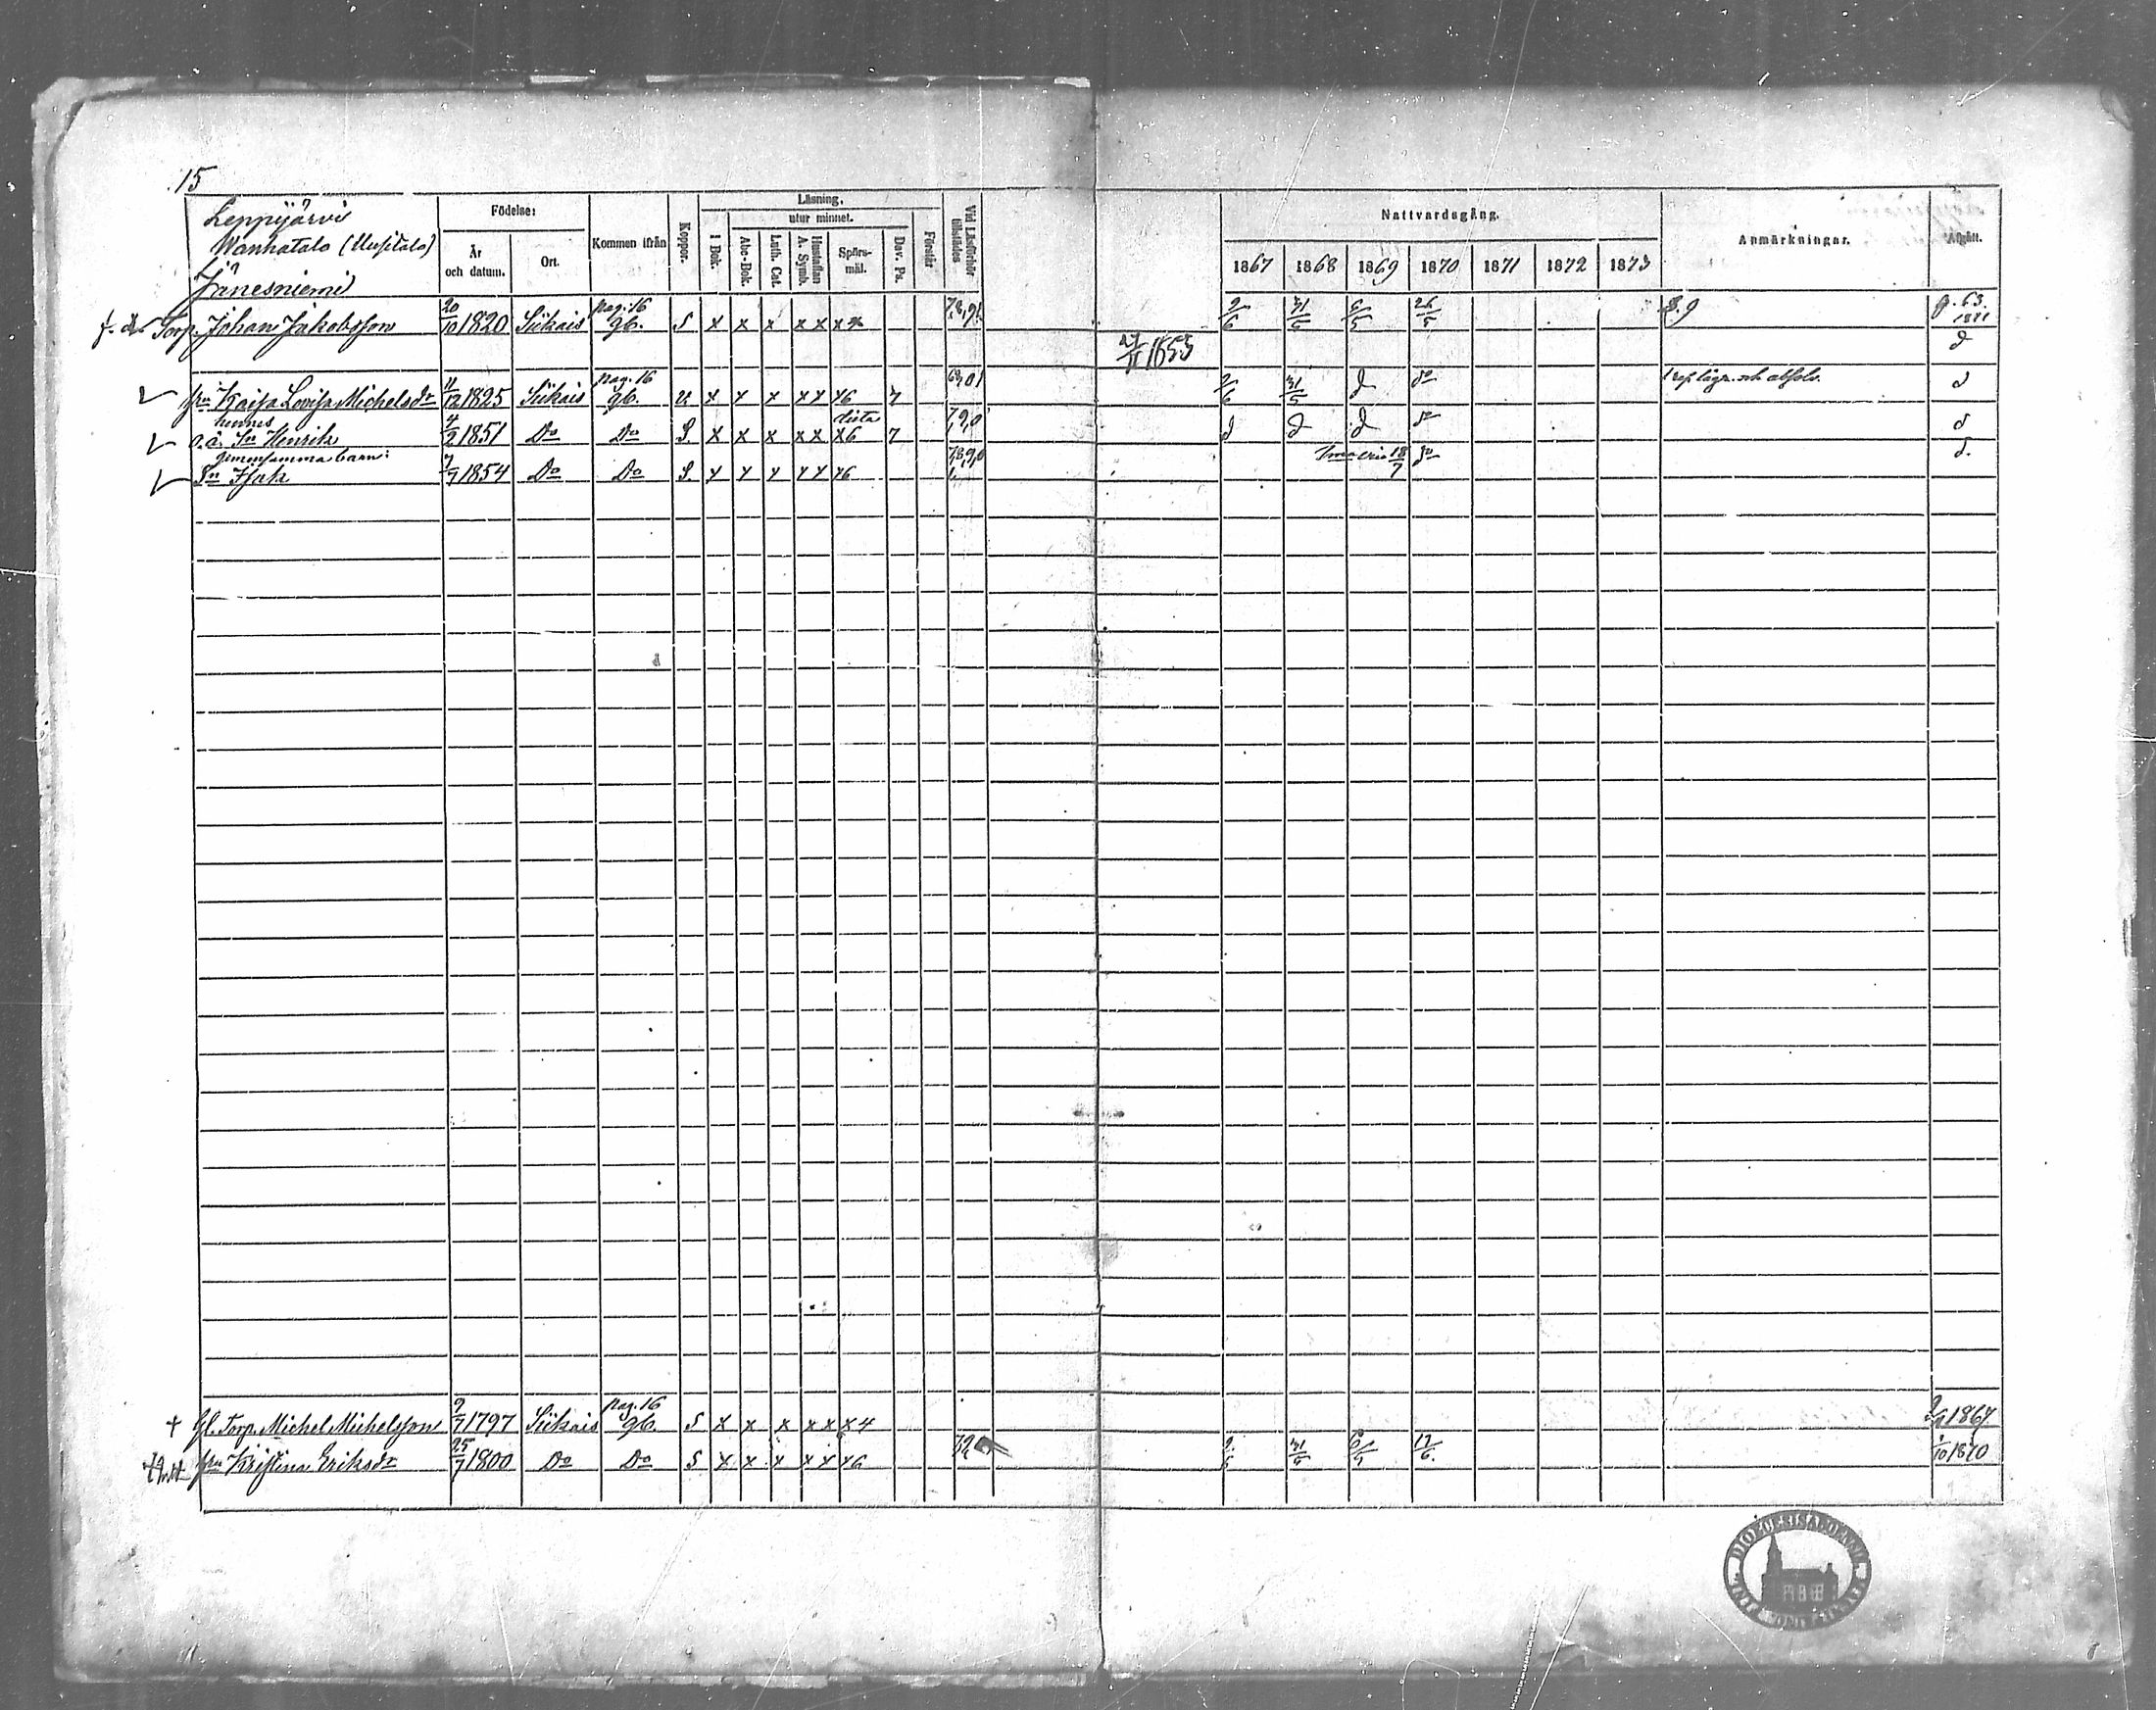 15
Leppijärvi
Wanhatalo (Uusitalo)
Jänesniemi
Födelse:
År och datum.
Ort.
Kommen ifrån
Koppor.
Läsning.
utur minnet.
I Bok.
Abc-Bok.
Luth. Cat.
Hustaflan A. Symb.
Spörsmål.
Dav. Ps.
Förstår
Vid Läsförhör tillstädes
Nattvardsgång.
1867 1868 1869 1870 1871 1872 1873
Anmärkningar.
Afgått.
Torp. Johan Jakobsson 20/10 1820 Siikais pag. 16 gb. S x x x x x x x 2/6 31/5 6/5 26/5 p. 63. 1881
27/11 1853 d
hru Kaisa Lovisa Michelsdr 11/12 1825 Siikais pag. 16 gb. u x x x x x x6 7 2/6 31/5 d do d
hennes
o.ä. Sn Henrik 4/2 1851 Do Do S. x x x x x x6 7 d d d do d
gemensamma barn:
Sn Isak 7/7 1854 Do Do S. x x x x x x6 18/7 do d.
Gl. Torp. Michel Michelsson 9/7 1797 Siikais pag. 16 gb. S x x x x x x 4 1867
hru Kristina Eriksdr 25/7 1800 Do Do S x x x x x x6 31/5 6/5 17/6. 1/10 1870